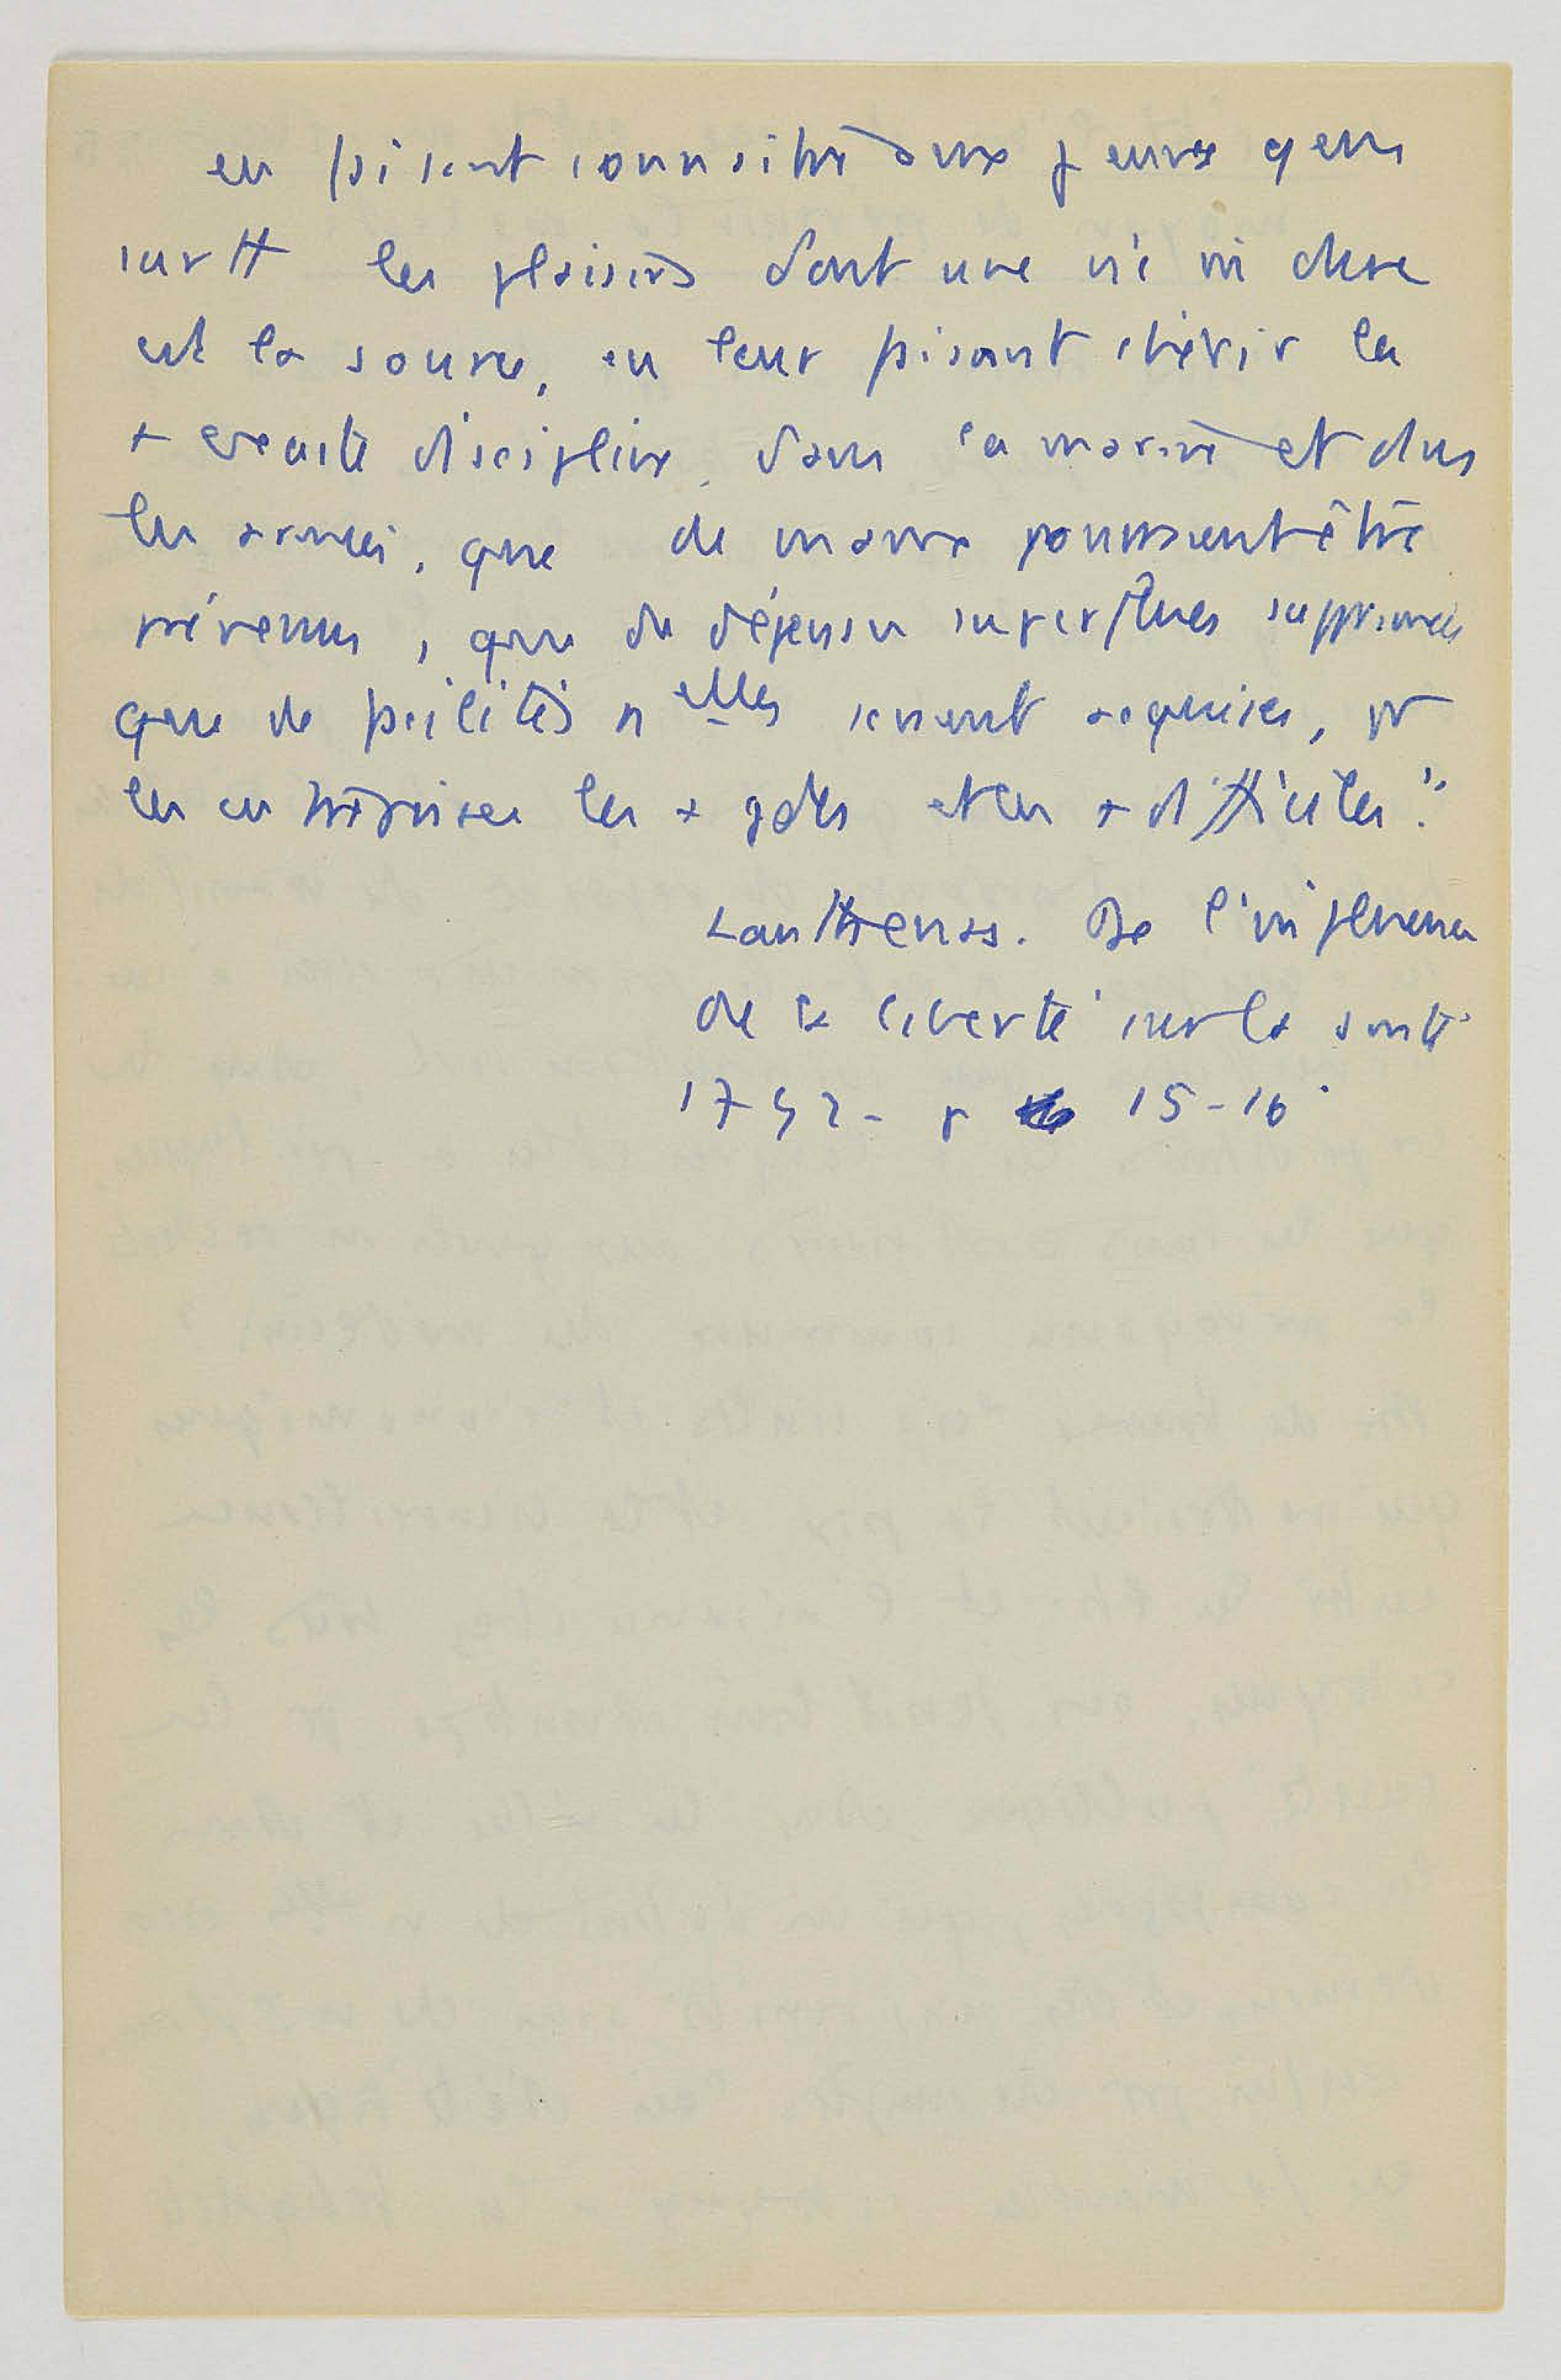 en faisant connaître aux jeunes gens
surtt les plaisirs dont une vie dure
est la source, en leur faisant chérir la
+ exacte discipline. Dans la marine et dans
les armées, que de maux pourraient être
prévenus, que de dépenses superflues supprimées
que de facilités nelles seraient acquises, pr
les entreprises les + gdes et les + difficiles."
Lanthenas. De l'influence
de la liberté sur la santé
1792 - p 15-16.